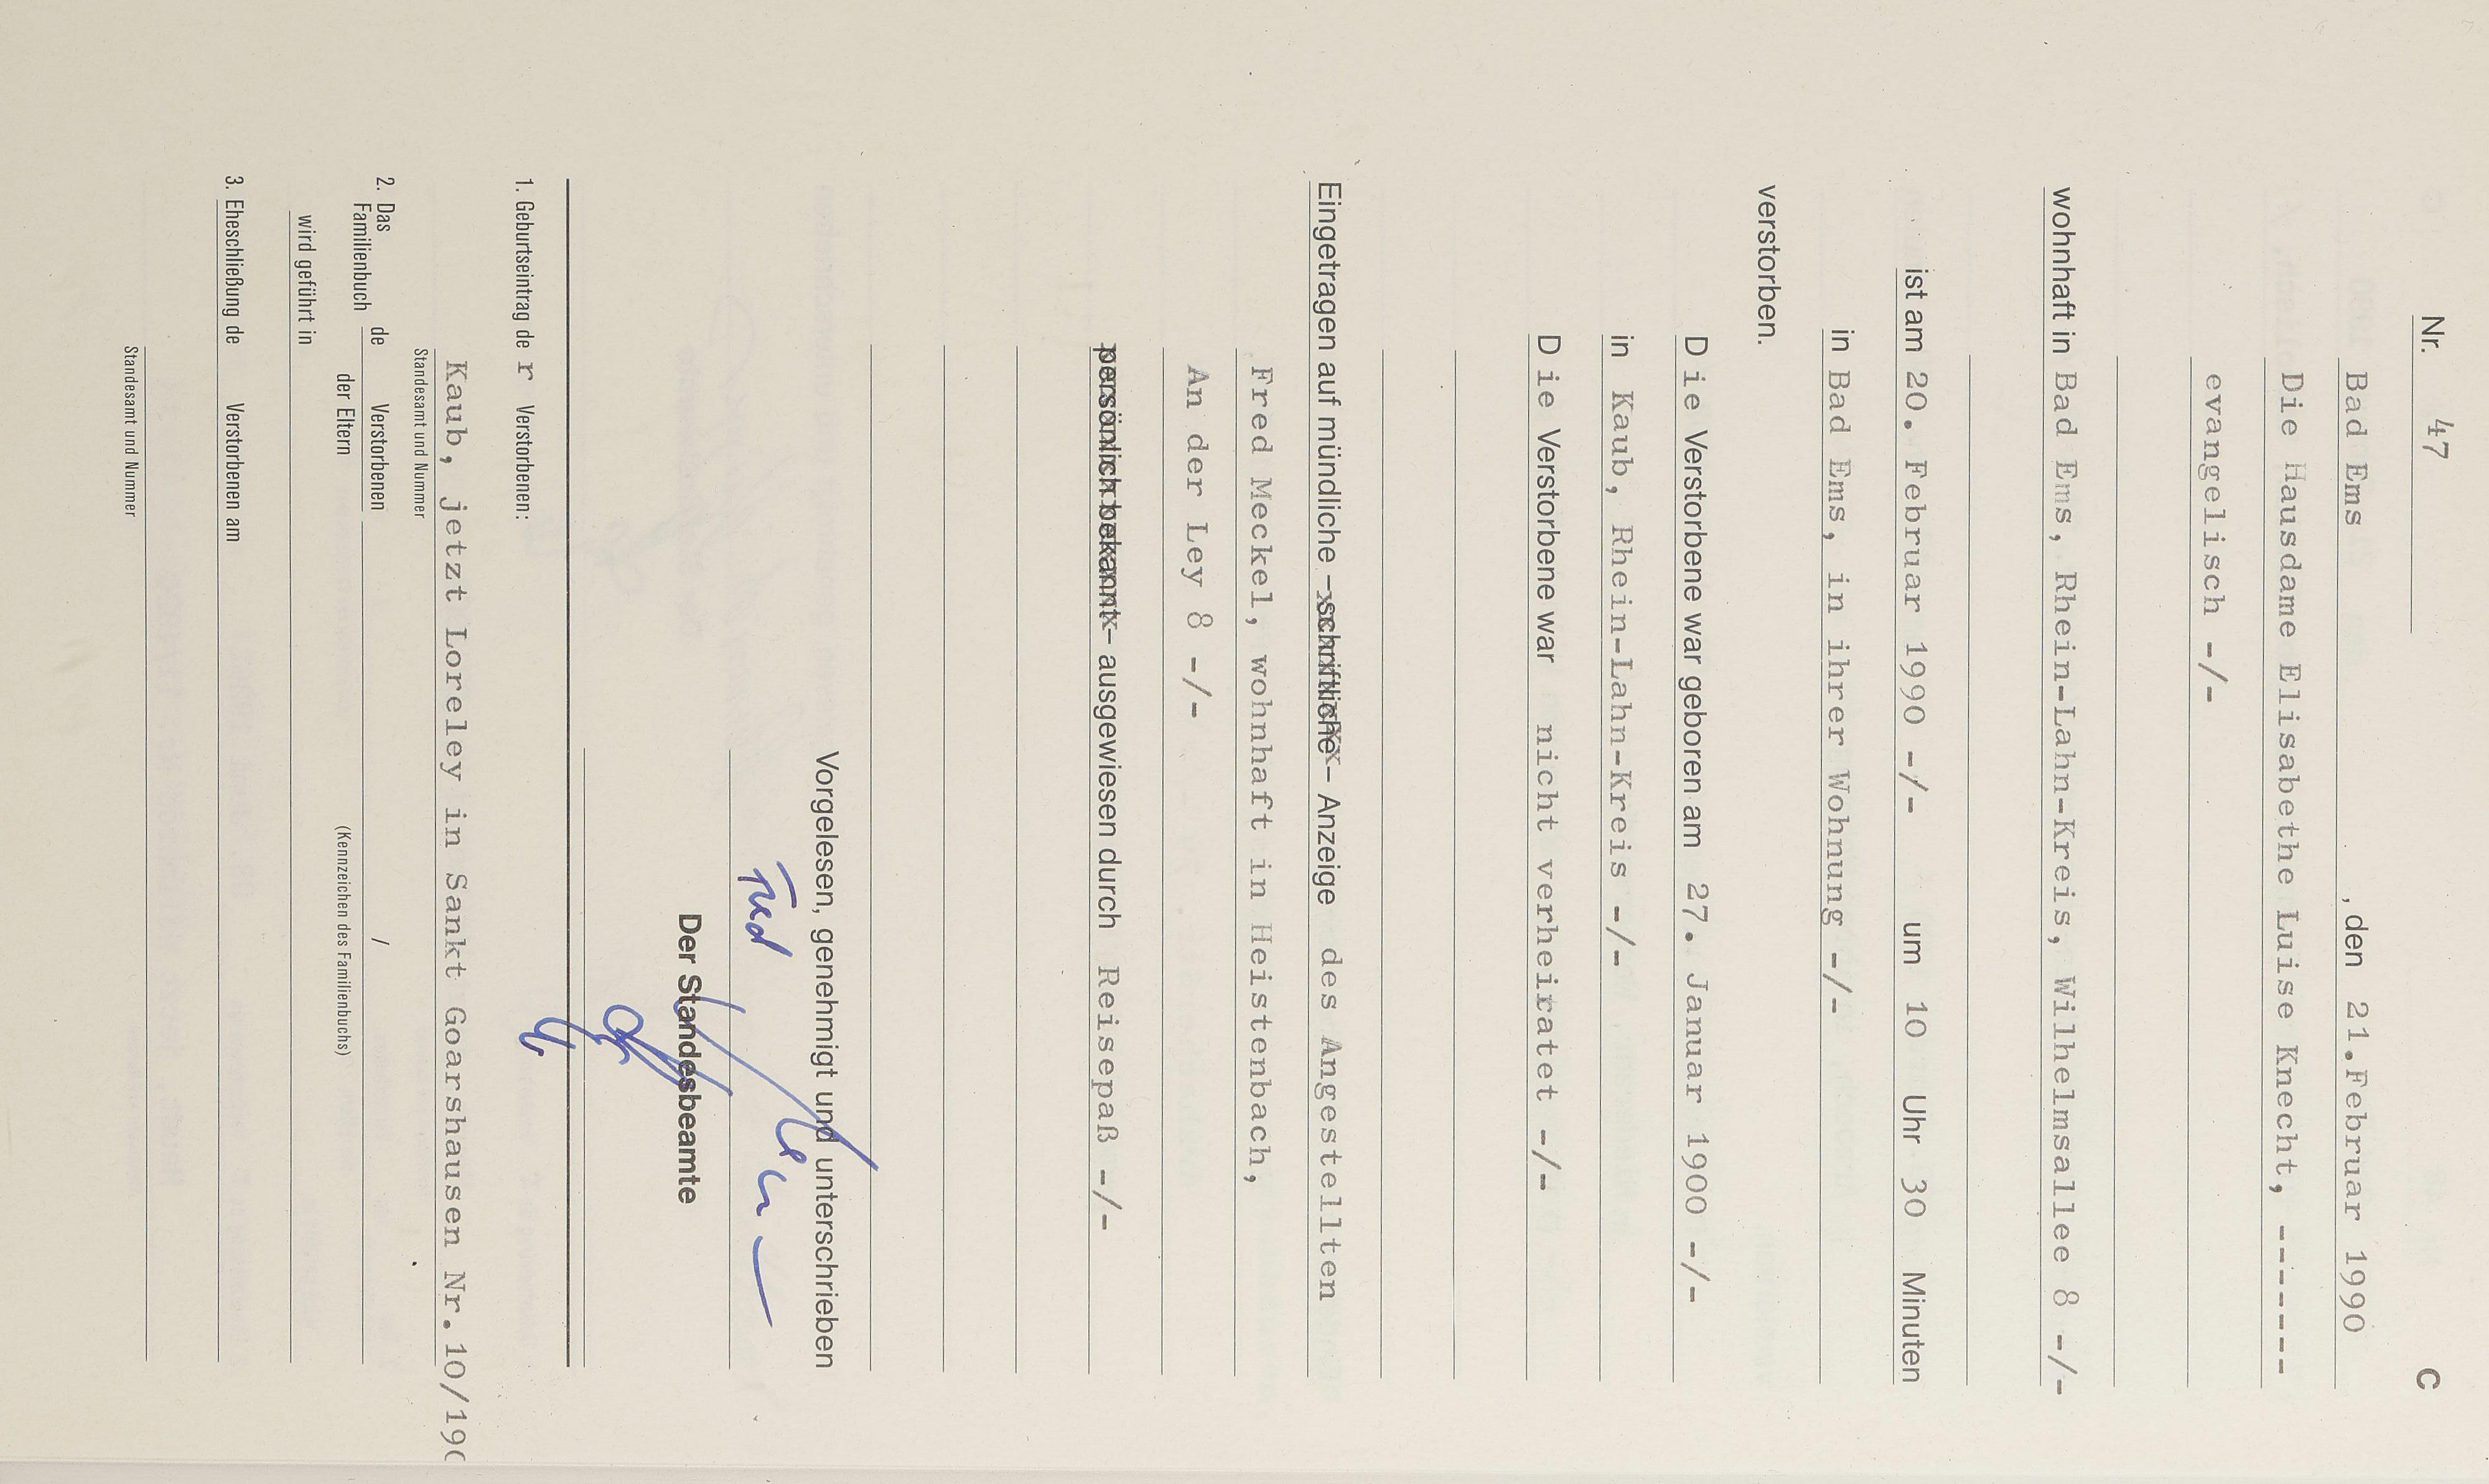 Nr. 47 C
Bad Ems , den 21.Februar 1990
Die Hausdame Elisabethe Luise Knecht, -------
evangelisch -/-
wohnhaft in Bad Ems, Rhein-Lahn-Kreis, Wilhelmsallee 8 -/-
ist am 20. Februar 1990 -/- um 10 Uhr 30 Minuten
in Bad Ems, in ihrer Wohnung -/-
verstorben.
D ie Verstorbene war geboren am 27. Januar 1900 -/-
in Kaub, Rhein-Lahn-Kreis -/-
D ie Verstorbene war nicht verheiratet -/-
Eingetragen auf mündliche – schriftliche – Anzeige des Angestellten
Fred Meckel, wohnhaft in Heistenbach,
An der Ley 8 -/-
persönlich bekannt – ausgewiesen durch Reisepaß -/-
Vorgelesen, genehmigt und unterschrieben
Fred
Der Standesbeamte
1. Geburtseintrag de r Verstorbenen:
Kaub, jetzt Loreley in Sankt Goarshausen Nr.10/190
Standesamt und Nummer
2. Das Familienbuch de Verstorbenen /
der Eltern (Kennzeichen des Familienbuchs)
wird geführt in
3. Eheschließung de Verstorbenen am
Standesamt und Nummer